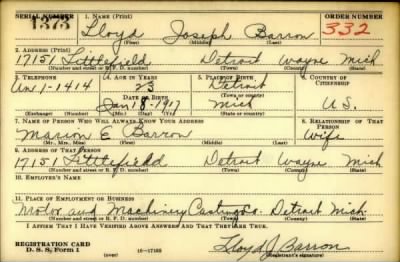 SERIAL NUMBER 1. NAME (Print) ORDER NUMBER
1373 Lloyd Joseph Barron 332
(First) (Middle) (Last)
2. ADDRESS (Print)
17151 Littlefield Detroit Wayne Mich
(Number and street or R. F. D. number) (Town) (County) (State)
3. TELEPHONE 4. AGE IN YEARS 5. PLACE OF BIRTH 6. COUNTRY OF CITIZENSHIP
Un 1-1414 23 Detroit
DATE OF BIRTH (Town or county)
Jan 18 1917 Mich U.S.
(Exchange) (Number) (Mo.) (Day) (Yr.) (State or country)
7. NAME OF PERSON WHO WILL ALWAYS KNOW YOUR ADDRESS 8. RELATIONSHIP OF THAT PERSON
Marion E Barron Wife
(Mr., Mrs., Miss) (First) (Middle) (Last)
9. ADDRESS OF THAT PERSON
17151 Littlefield Detroit Wayne Mich
(Number and street or R. F. D. number) (Town) (County) (State)
10. EMPLOYER'S NAME
11. PLACE OF EMPLOYMENT OR BUSINESS
Motor and Machinery Casting Co. Detroit Mich.
(Number and street or R. F. D. number) (Town) (County) (State)
I AFFIRM THAT I HAVE VERIFIED ABOVE ANSWERS AND THAT THEY ARE TRUE.
REGISTRATION CARD
D. S. S. Form 1 (over) 16-17105 Lloyd J Barron
(Registrant's signature)